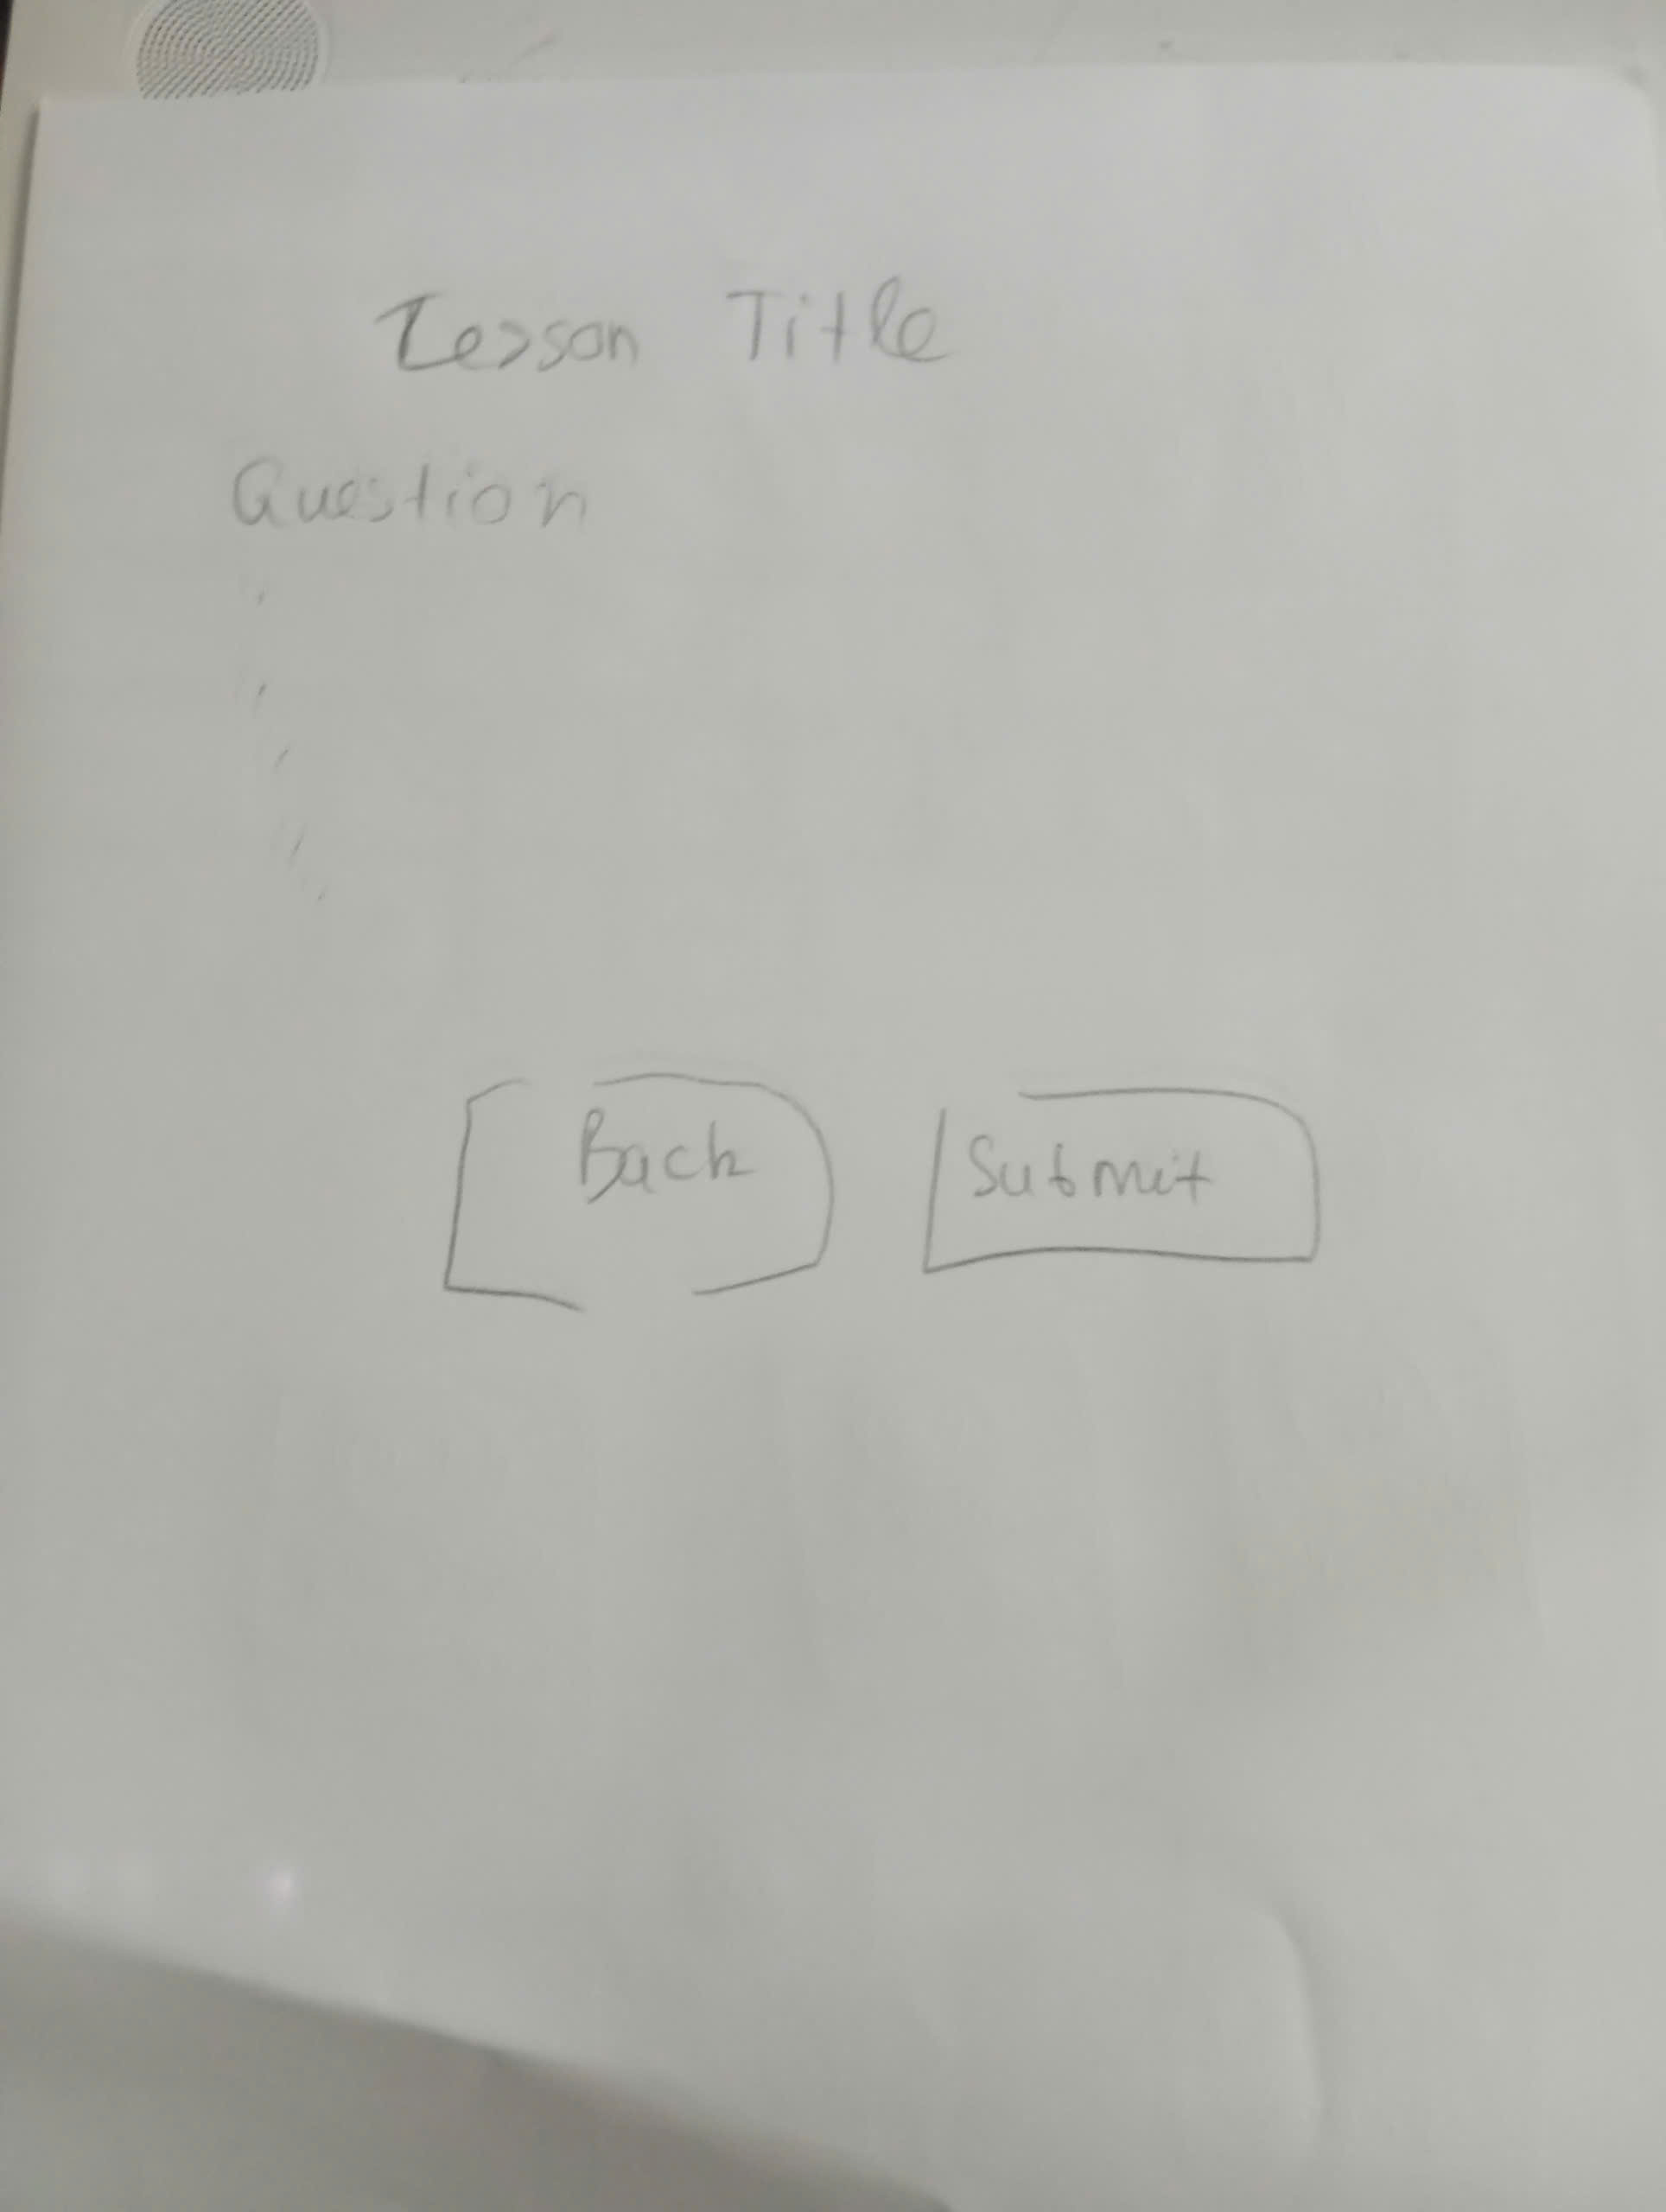 Lesson Title
Question
Back
Submit